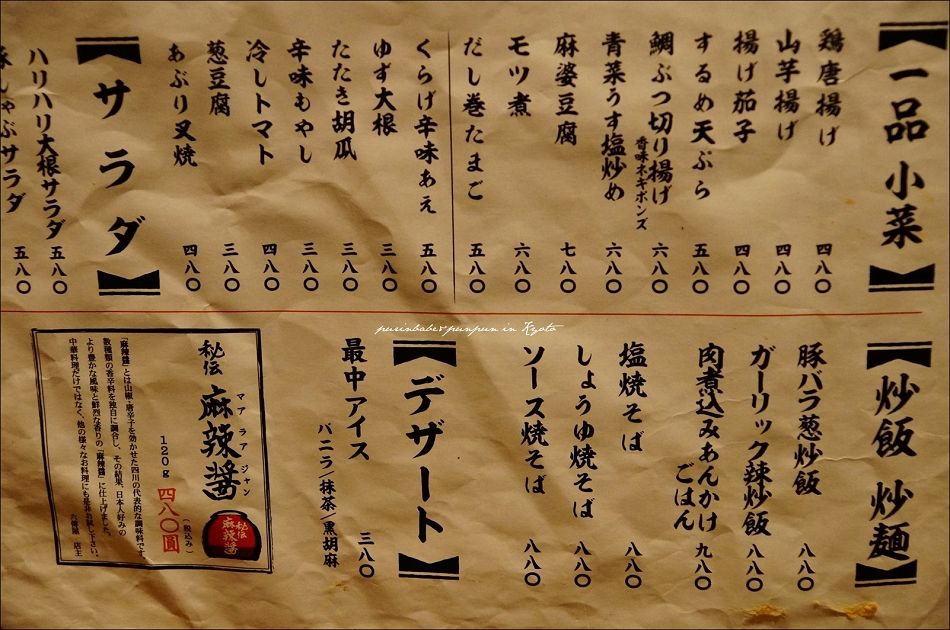 【一品 小菜】
鶏唐揚げ 四八〇
山芋揚げ 四八〇
揚げ茄子 四八〇
するめ天ぷら 五八〇
鯛ぶつ切り揚げ 六八〇
香味ネギポンズ
青菜うす塩炒め 六八〇
麻婆豆腐 七八〇
モツ煮 六八〇
だし巻たまご 五八〇
くらげ辛味あえ 五八〇
ゆず大根 三八〇
たたき胡瓜 三八〇
辛味もやし 三八〇
冷しトマト 四八〇
葱豆腐 三八〇
あぶり叉焼 四八〇
【サラダ】
ハリハリ大根サラダ 五八〇
豚しゃぶサラダ 五八〇
【炒飯 炒麺】
豚バラ葱炒飯 八八〇
ガーリック辣炒飯 八八〇
肉煮込みあんかけ
ごはん 九八〇
塩焼そば 八八〇
しょうゆ焼そば 八八〇
ソース焼そば 八八〇
【デザート】
最中アイス 三八〇
バニラ/抹茶/黒胡麻
秘伝 麻辣醤
マアラアジャン
秘伝
麻辣醤
120g 四八〇圓
(税込み)
「麻辣醤」とは山椒・唐辛子を効かせた四川の代表的な調味料です。
数種類の香辛料を独自に調合し、その結果、日本人好みの
より豊かな風味と鮮烈な香りの「麻辣醤」に仕上げました。
中華料理だけではなく、他の様々なお料理にも是非お試し下さい。
店主
purinbaber punpun in Kyoto